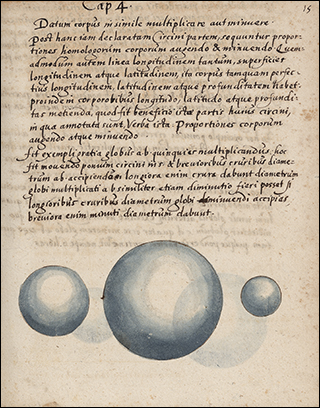 Cap 4.
15
Datum corpus in simile multiplicare aut minuere.
Post hanc iam declaratam circini partem, sequuntur propor
tiones homologorum corporum augendo & minuendo Quem
admodum autem linea longitudinem tantum, superficies
longitudinem atque latitudinem, ita corpus tanquam perfec
tius longitudinem, latitudinem atque profunditatem habet.
proinde in corporibus longitudo, latitudo atque profundi
tas metienda, quod fit beneficio partis huius circini,
in qua annotata sunt Verba ista Proportiones corporum
augendo atque minuendo.
fit exempli gratia globus a b quinquies multiplicandus, hoc
fit movendo punctum circini in 5 & brevioribus cruribus diame-
trum ab accipiendo longiora enim crura dabunt diametrum
globi multiplicati a b similiter etiam diminutio fieri posset si
longioribus cruribus diametrum globi minuendi accipias
breviora enim minuti diametrum dabunt.